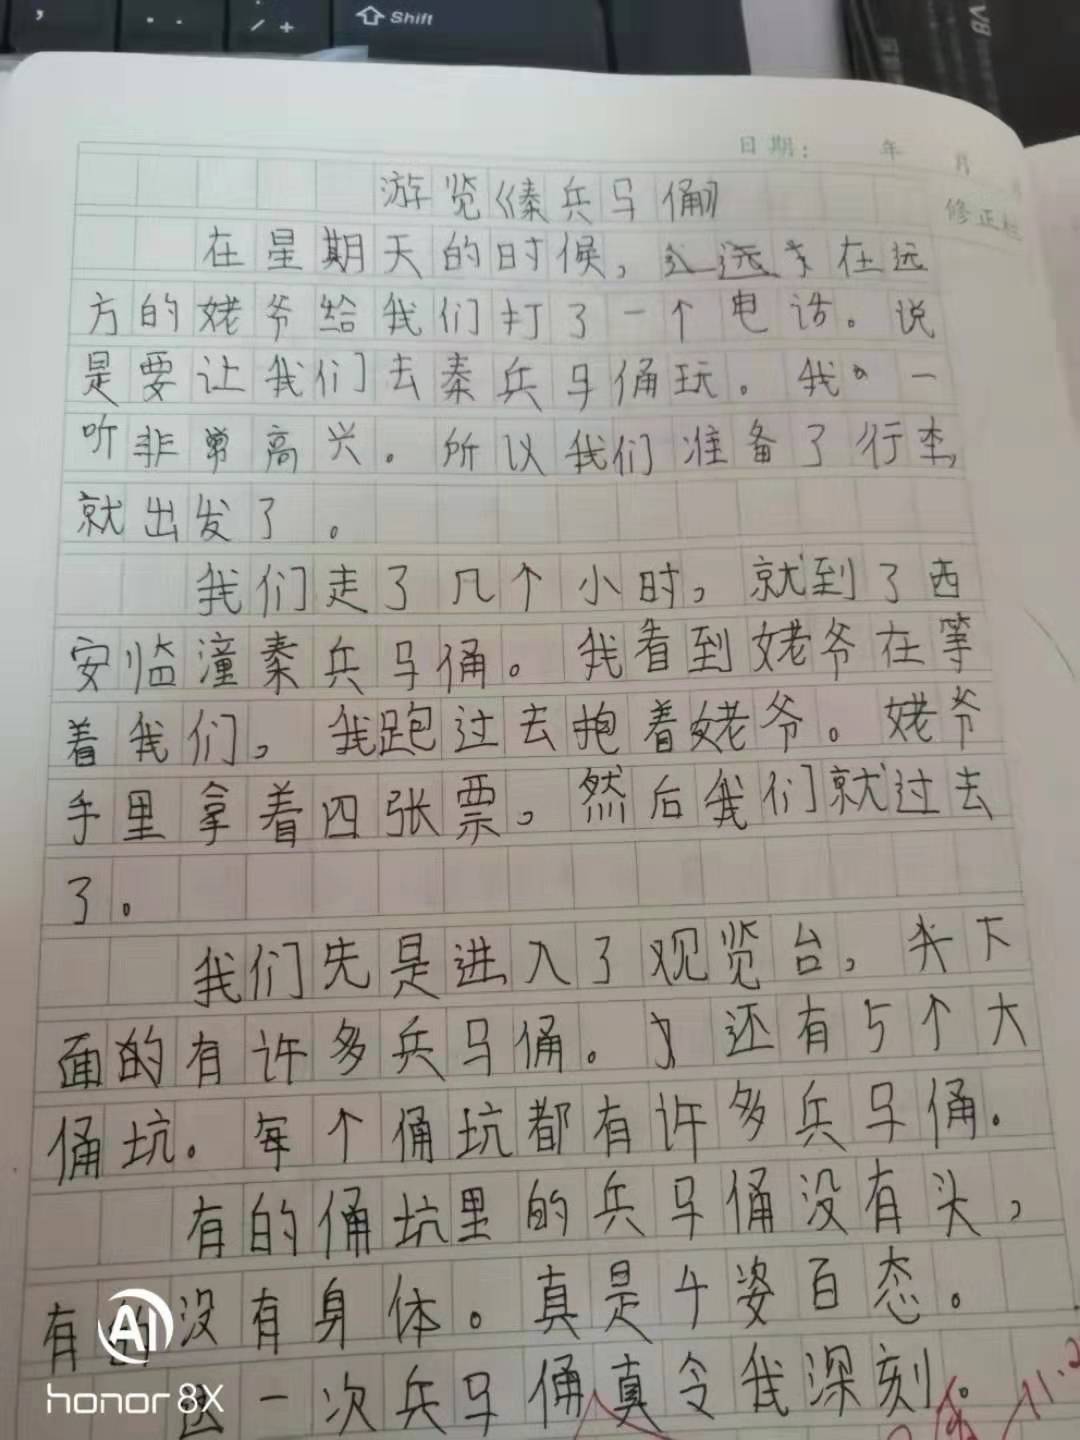 Shift
V8
日期： 年 月
修正栏
游览《秦兵马俑》
在星期天的时候，在远
方的姥爷给我们打了一个电话。说
是要让我们去秦兵马俑玩。我一
听非常高兴。所以我们准备了行李，
就出发了。
我们走了几个小时，就到了西
安临潼秦兵马俑。我看到姥爷在等
着我们，我跑过去抱着姥爷。姥爷
手里拿着四张票，然后我们就过去
了。
我们先是进入了观览台，头下
面的有许多兵马俑。还有5个大
俑坑。每个俑坑都有许多兵马俑.
有的俑坑里的兵马俑没有头，
有的没有身体。真是千姿百态。
这一次兵马俑真令我深刻。
11.2
AI
honor 8X